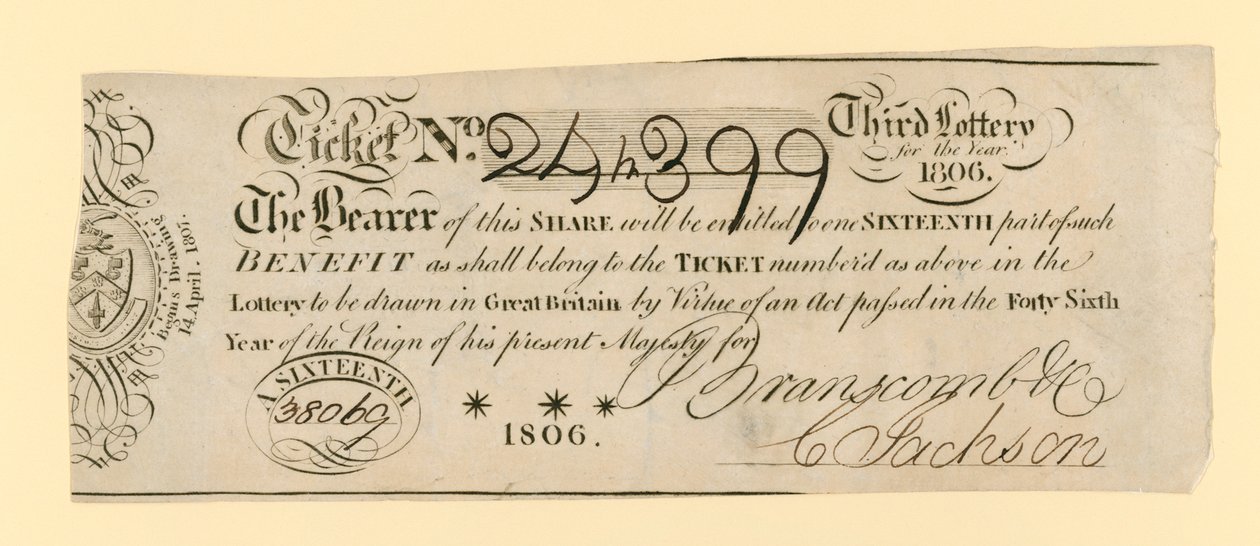 Ticket No. 24m399
Third Lottery
for the Year
1806.
The Bearer of this SHARE will be entitled to one SIXTEENTH part of such
BENEFIT as shall belong to the TICKET number'd as above in the
Lottery to be drawn in Great Britain by Virtue of an Act paſsed in the Forty Sixth
Year of the Reign of his present Majesty for
Branscomb & Co
C Jackson
A. SIXTEENTH
38069
* * *
1806.
Begins Drawing
14 April - 1807.